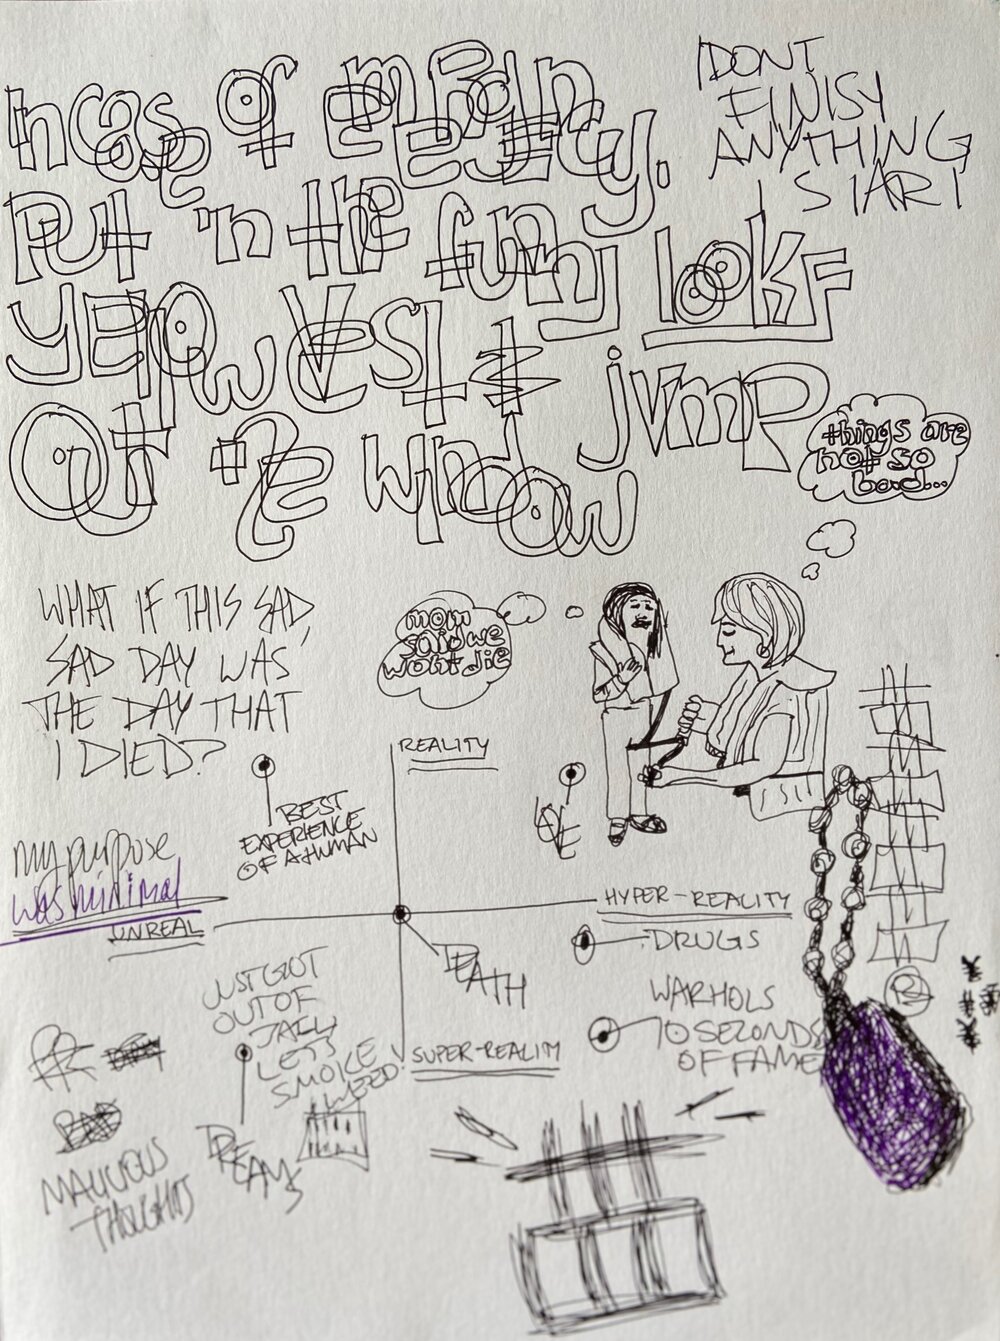 Incase of emergency.
Put 'n the funny looking
yellow vest & jump
Out the window
I DONT
FINISH
ANYTHING
I START
things are
not so
bad...
WHAT IF THIS SAD,
SAD DAY WAS
THE DAY THAT
I DIED?
mom
said we
wont die
REALITY
BEST
EXPERIENCE
OF A HUMAN
my purpose
was minimal
UNREAL
HYPER-REALITY
DEATH
DRUGS
JUST GOT
OUT OF
JAIL,
LETS
SMOKE
WEED!
SUPER-REALITY
WARHOLS
10 SECONDS
OF FAME
BAD
MALICIOUS
THOUGHTS
DREAMS